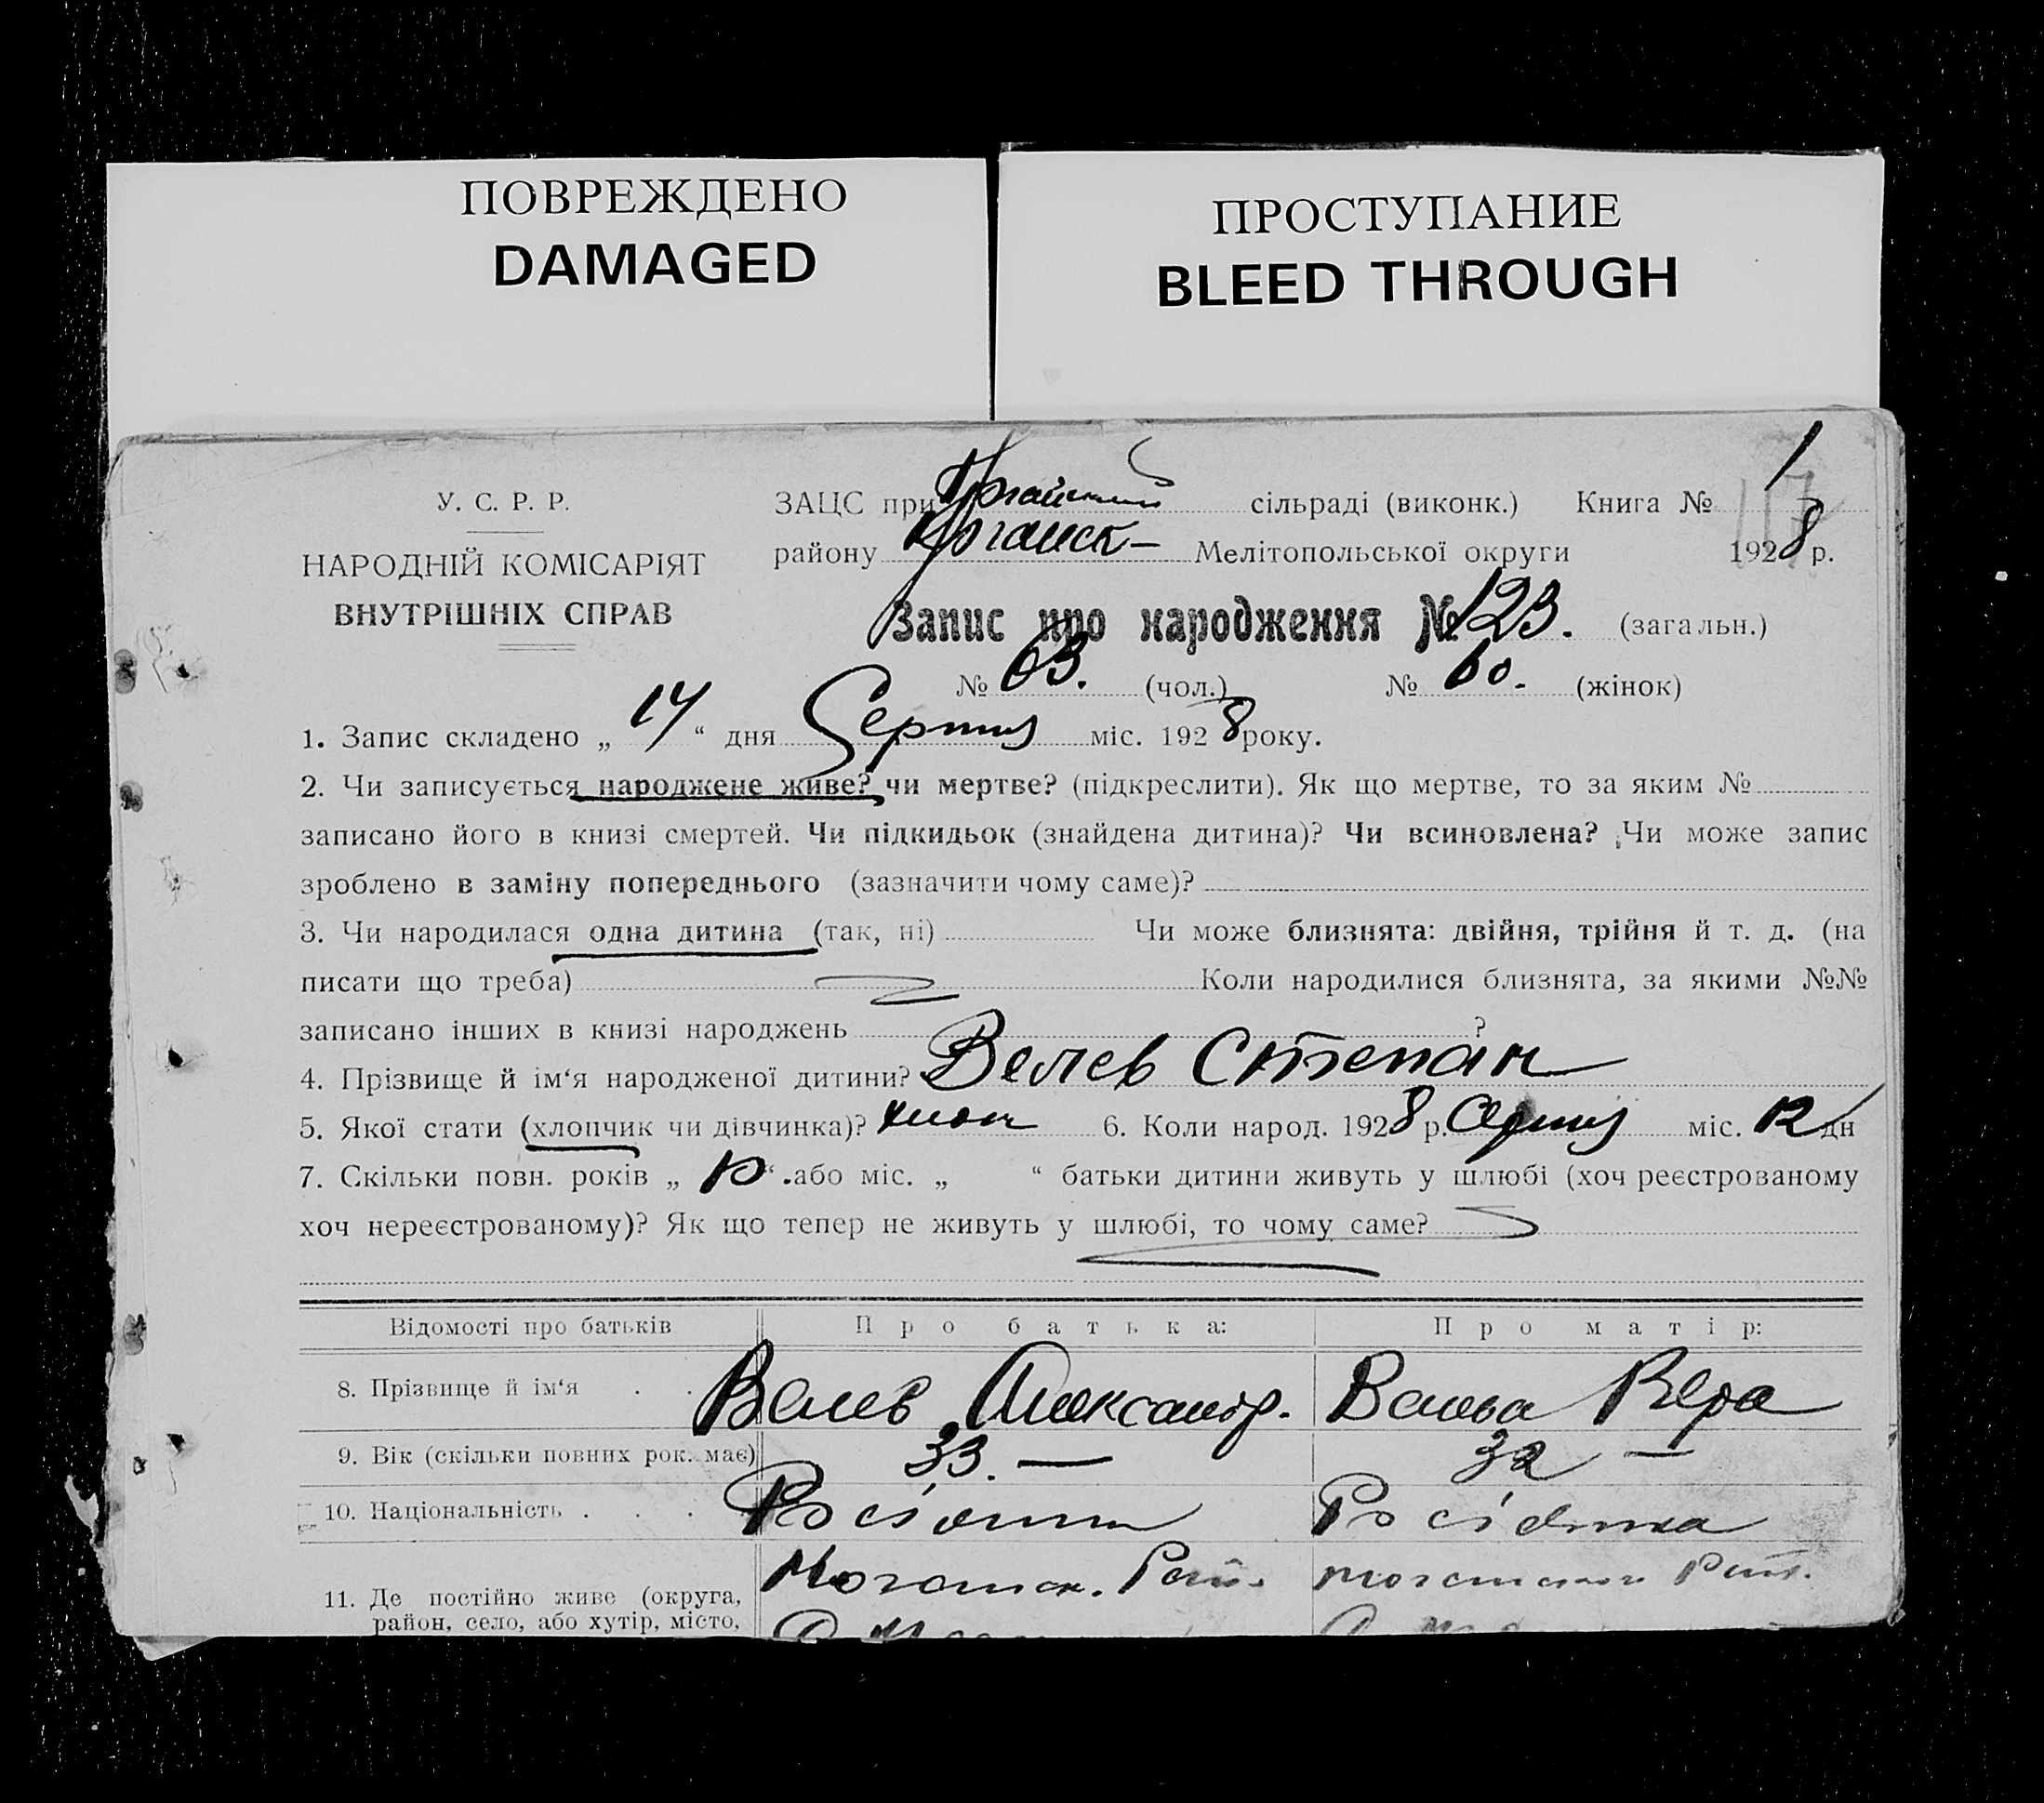 ПОВРЕЖДЕНО
DAMAGED
ПРОСТУПАНИЕ
BLEED THROUGH
У. С. Р. Р.
НАРОДНІЙ КОМІСАРІЯТ
ВНУТРІШНІХ СПРАВ
ЗАЦС при сільраді (виконк.) Книга № 1
району Мелітопольської округи 1928 р.
Запис про народження № 123. (загальн.)
№ 63. (чол.) № 60. (жінок)
1. Запис складено „ 14 “ дня Серпня міс. 1928 року.
2. Чи записується народжене живе? чи мертве? (підкреслити). Як що мертве, то за яким №
записано його в книзі смертей. Чи підкидьок (знайдена дитина)? Чи всиновлена? Чи може запис
зроблено в заміну попереднього (зазначити чому саме)?
3. Чи народилася одна дитина (так, ні) Чи може близнята: двійня, трійня й т. д. (на
писати що треба) Коли народилися близнята, за якими №№
записано інших в книзі народжень ?
4. Прізвище й ім‘я народженої дитини? Велев Степан
5. Якої стати (хлопчик чи дівчинка)? хлоп 6. Коли народ. 1928 р. Серпня міс. 12 дн
7. Скільки повн. років „ 10 “ . або міс. „ “ батьки дитини живуть у шлюбі (хоч реєстрованому
хоч нереєстрованому)? Як що тепер не живуть у шлюбі, то чому саме?
Відомості про батьків Про батька: Про матір:
8. Прізвище й ім‘я . . Велев Александр. Вера
9. Вік (скільки повних рок. має) 33. — 32 —
10. Національність . . . Росіянин Росіянка
11. Де постійно живе (округа, Рай. Рай.
район, село, або хутір, місто,